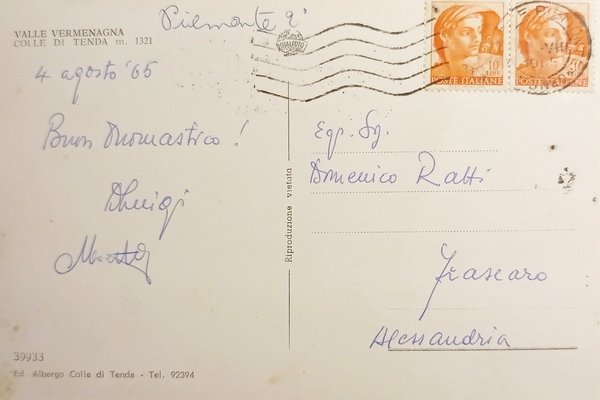 Piemonte 2°
VALLE VERMENAGNA
COLLE DI TENDA m. 1321
4 agosto '65
Buon Onomastico!
Luigi
Riproduzione vietata
10
LIRE
POSTE ITALIANE
POSTE ITALIANE
Egr. Sg.
Domenico Ratti
Frascaro
Alessandria
39933
Ed. Albergo Colle di Tenda - Tel. 92394